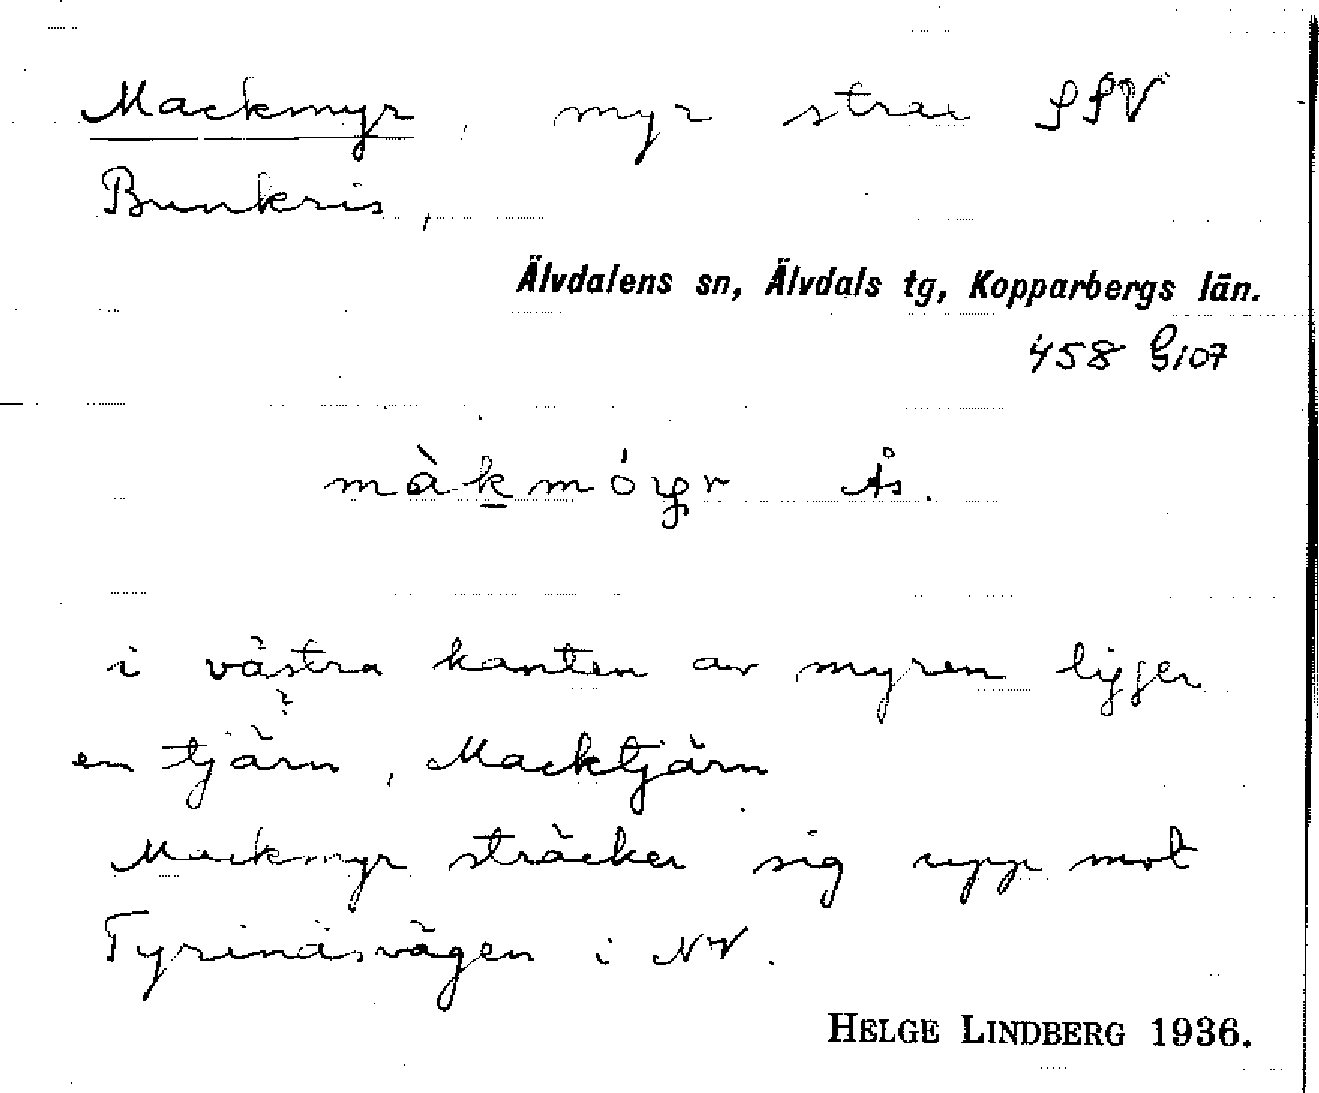 Mackmyr, myr strax SSV
Bunkris,
Älvdalens sn, Älvdals tg, Kopparbergs län.
458 G107
màkmóyr Ås.
i västra kanten av myren ligger
en tjärn, Macktjärn
Mackmyr sträcker sig upp mot
Tyrinäsvägen i NV.
HELGE LINDBERG 1936.